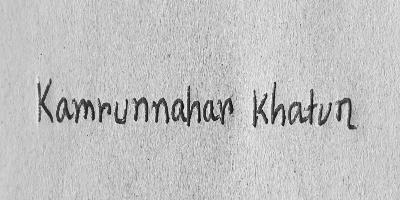 Kamrunnahar Khatun